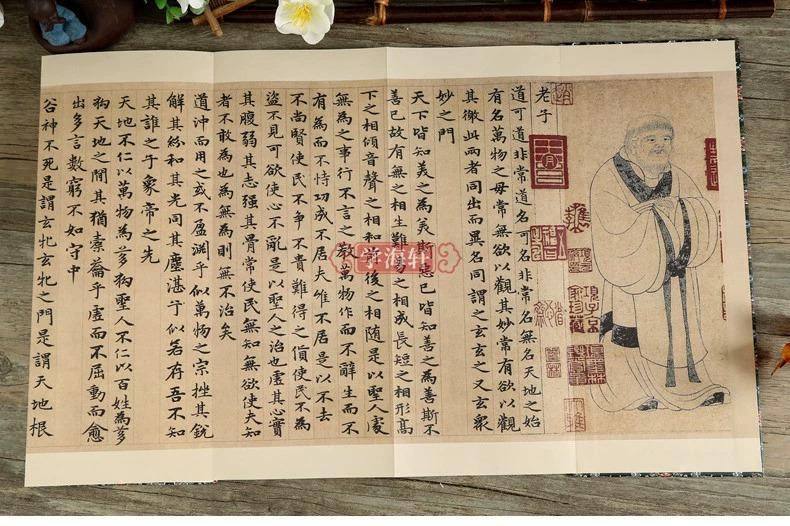 老子
道可道非常道名可名非常名無名天地之始
有名萬物之母常無欲以觀其妙常有欲以觀
其徼此兩者同出而異名同謂之玄玄之又玄眾
妙之門
天下皆知美之為美斯惡已皆知善之為善斯不
善已故有無之相生難易之相成長短之相形高
下之相傾音聲之相和前後之相隨是以聖人處
無為之事行不言之教萬物作而不辭生而不
有為而不恃功成不居夫惟不居是以不去
不尚賢使民不爭不貴難得之貨使民不為
盜不見可欲使心不亂是以聖人之治也虛其心實
其腹弱其志强其骨常使民無知無欲使夫知
者不敢為也為無為則無不治矣
道沖而用之或不盈淵乎似萬物之宗挫其銳
解其紛和其光同其塵湛乎似若存吾不知
其誰之子象帝之先
天地不仁以萬物為芻狗聖人不仁以百姓為芻
狗天地之間其猶橐籥乎虛而不屈動而愈
出多言數窮不如守中
谷神不死是謂玄牝玄牝之門是謂天地根
学海轩